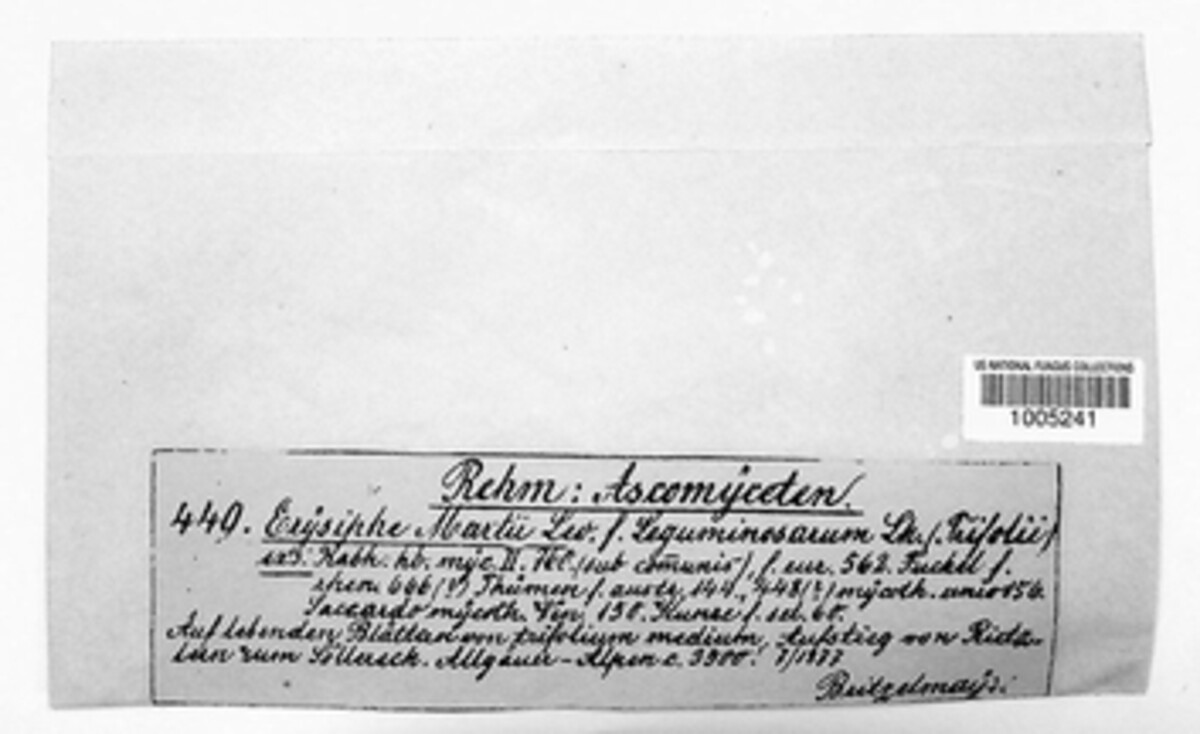 US NATIONAL FUNGUS COLLECTIONS
1005241
Rehm: Ascomyceten.
440. Erysiphe Martii Lev. f. Leguminosarum Lk. (Trifolii)
exs. Rabh. hb. myc. II. (sub communis), f. eur. 562. Fuckel f.
rhen. 666 (?) Thümen f. austr. 144., 448 (?) mycoth. univ. 156.
Saccardo mycoth. Ven. 130. Kunze f. sel. 60.
Auf lebenden Blättern von trifolium medium, Aufstieg von
zum Söllereck. Allgäuer-Alpen c. 3900'. 7/1877
Britzelmayr.